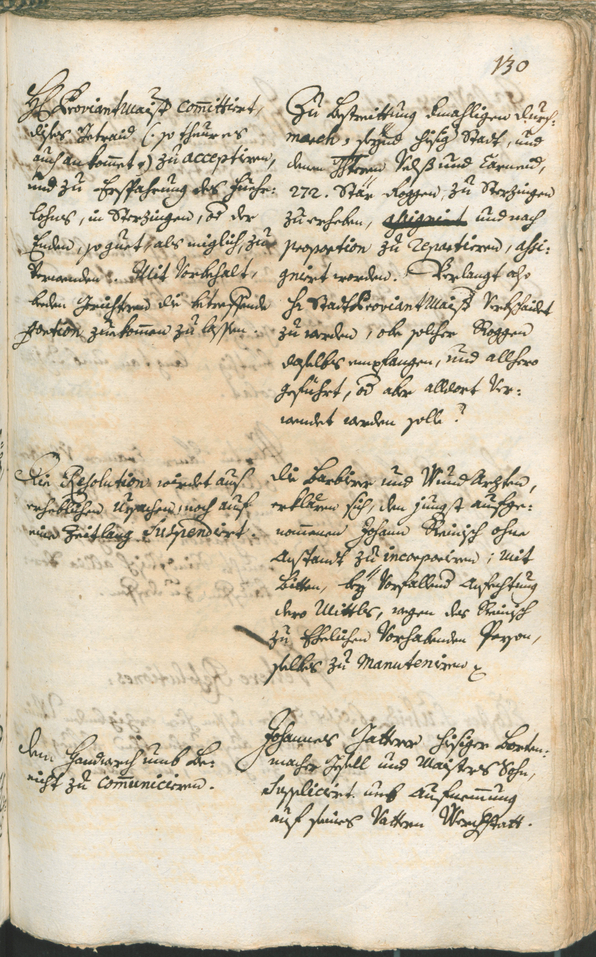 130
H: Proviantmaister committirt,
dises Getraid (: so theur es
auch ankomet :) zu acceptiren,
und zu Ersparung des Fuehr-
lohns, in Sterzingen, od der
Enden, so guet, als miglich, zu
verwenden. Mit Vorbehalt,
beden Gerichtern die betreffende
portion zuekommen zu lassen.
Zu bestreittung damahligen durch-
march, seynd hiesig Statt, und
denen Velß und
272. Stär Roggen, zu Sterzingen
zu erheben, und nach
proportion zu repartieren, assi-
gnirt worden. Verlangt also
H: Stadt Proviantmaister verbschaidet
zu werden, ob solcher Roggen
daselbs empfangen, und allhero
geführt, od aber alldort ver-
wendet werden solle?
Die Resolution wirdet aus
erheblichen Ursachen, noch auf
eine Zeitlang suspendirt.
Die Barbierer und Wund Arzten,
erklären sich, den jüngst aufge-
nommenen Johann Reinisch ohne
Anstandt zu incorporiren; mit
bitten, bey vorfallend Anfechtung
dero Mittls, wegen des Reinisch
zu Ehelichen vorhabenden Person,
selbes zu manuteniren
Dem Handtwerch umb Be-
richt zu communiciren.
Johannes Gatterer hiesiger Borten-
macher Gsell und Maisters Sohn,
supplicirt umb Aufnemmung
auf seines Vattern Werchstatt.